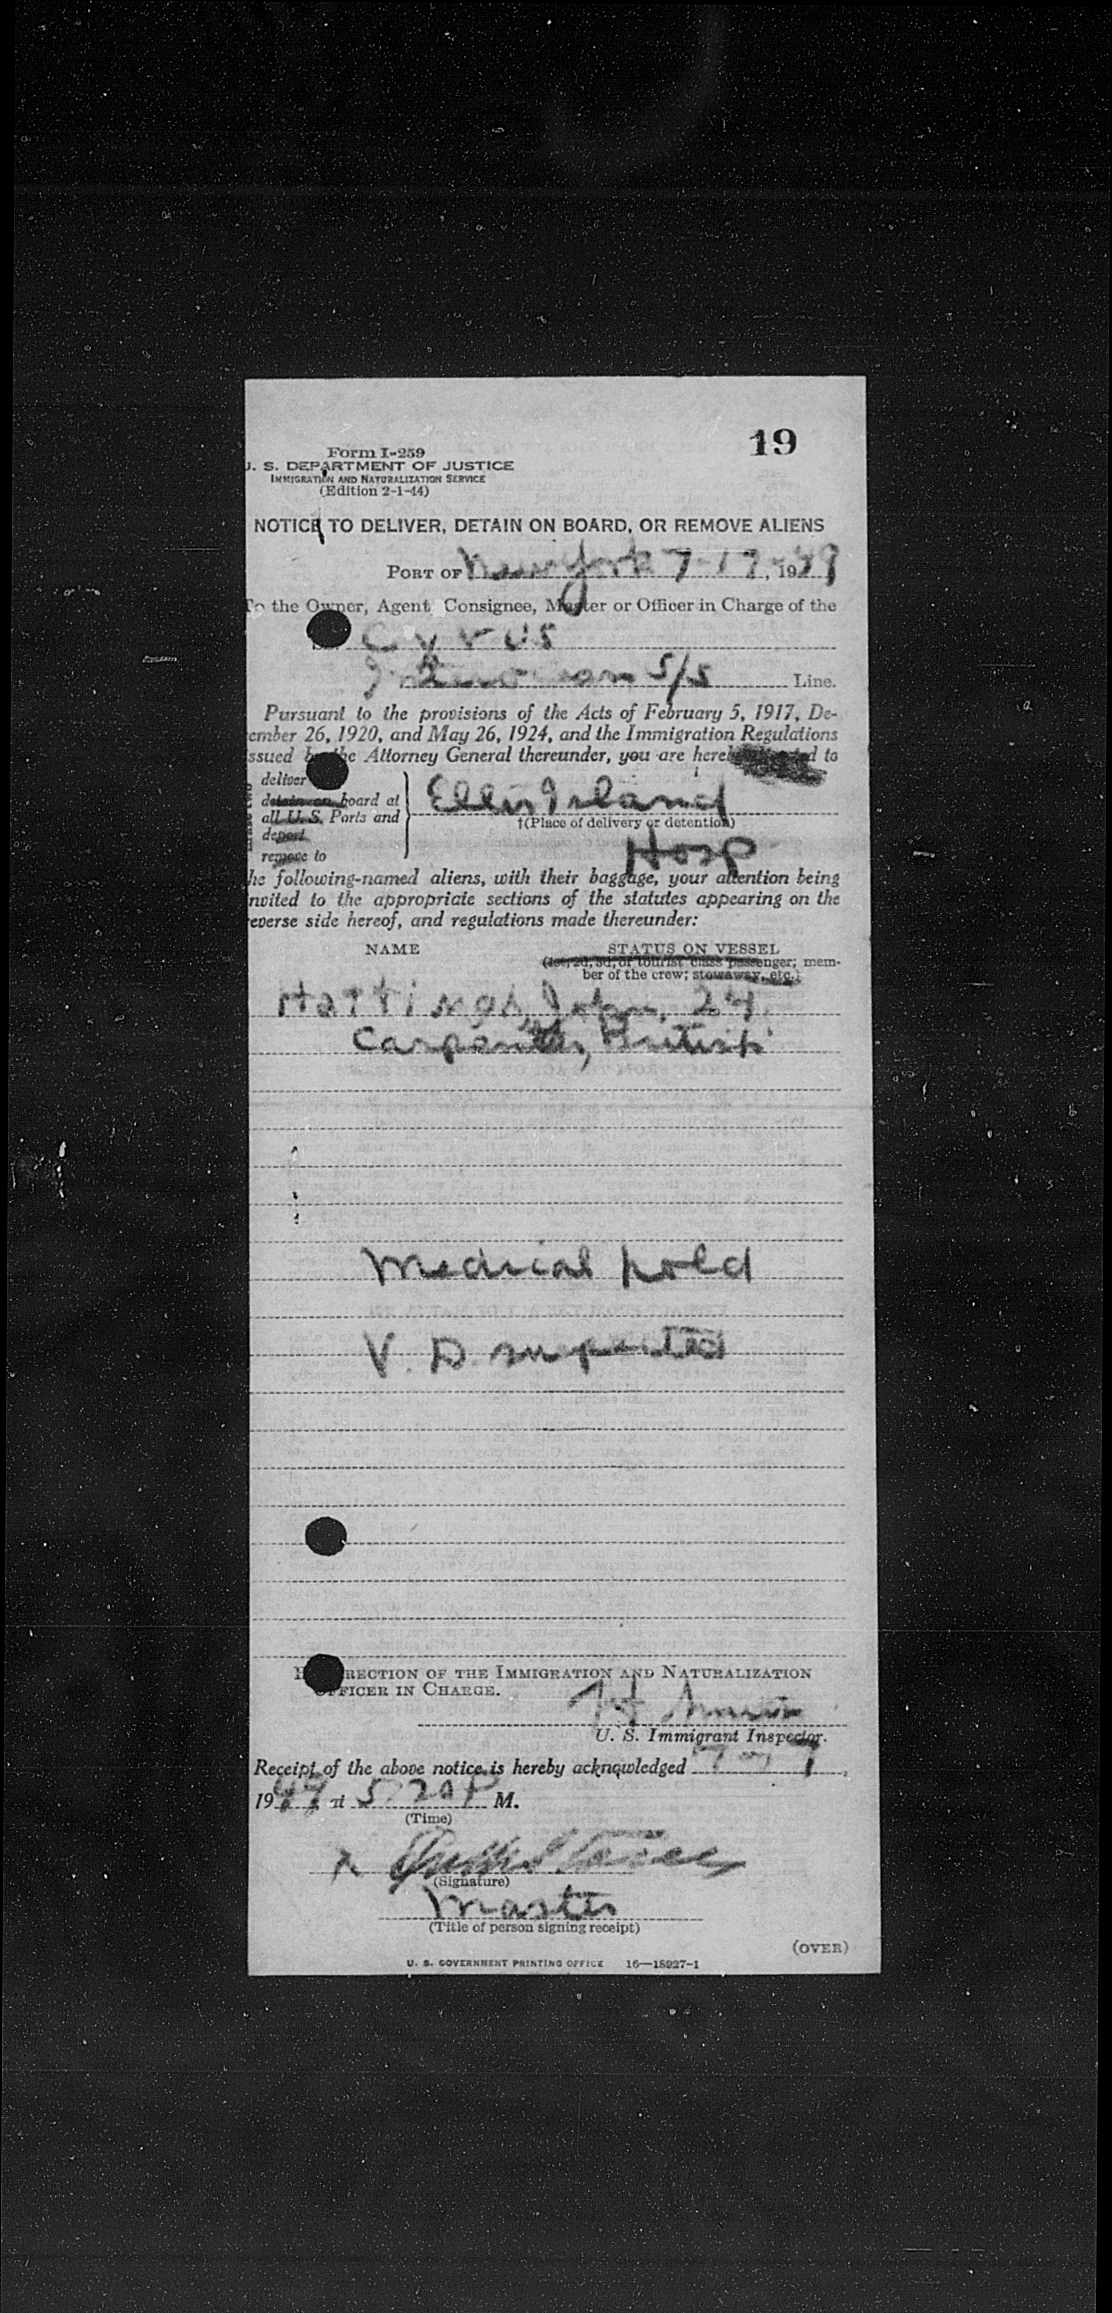 19
Form I-259
U. S. DEPARTMENT OF JUSTICE
IMMIGRATION AND NATURALIZATION SERVICE
(Edition 2-1-44)
NOTICE TO DELIVER, DETAIN ON BOARD, OR REMOVE ALIENS
PORT OF New York 7-17, 1949
To the Owner, Agent, Consignee, Master or Officer in Charge of the
Cyrus
S/S Line.
Pursuant to the provisions of the Acts of February 5, 1917, De-
cember 26, 1920, and May 26, 1924, and the Immigration Regulations
issued by the Attorney General thereunder, you are hereby to
deliver
detain on board at
all U. S. Ports and
deport
remove to
Ellis Island
†(Place of delivery or detention)
Hosp
the following-named aliens, with their baggage, your attention being
invited to the appropriate sections of the statutes appearing on the
reverse side hereof, and regulations made thereunder:
NAME STATUS ON VESSEL
(1st, 2d, 3d, or tourist class passenger; mem-
ber of the crew; stowaway, etc.)
Hastings, John, 24
Carpenter, British
Medical hold
V. D. suspected
DIRECTION OF THE IMMIGRATION AND NATURALIZATION
OFFICER IN CHARGE.
U. S. Immigrant Inspector.
Receipt of the above notice is hereby acknowledged
1949 at 5:20 P M.
(Time)
(Signature)
Master
(Title of person signing receipt)
(OVER)
U. S. GOVERNMENT PRINTING OFFICE 16—18927-1